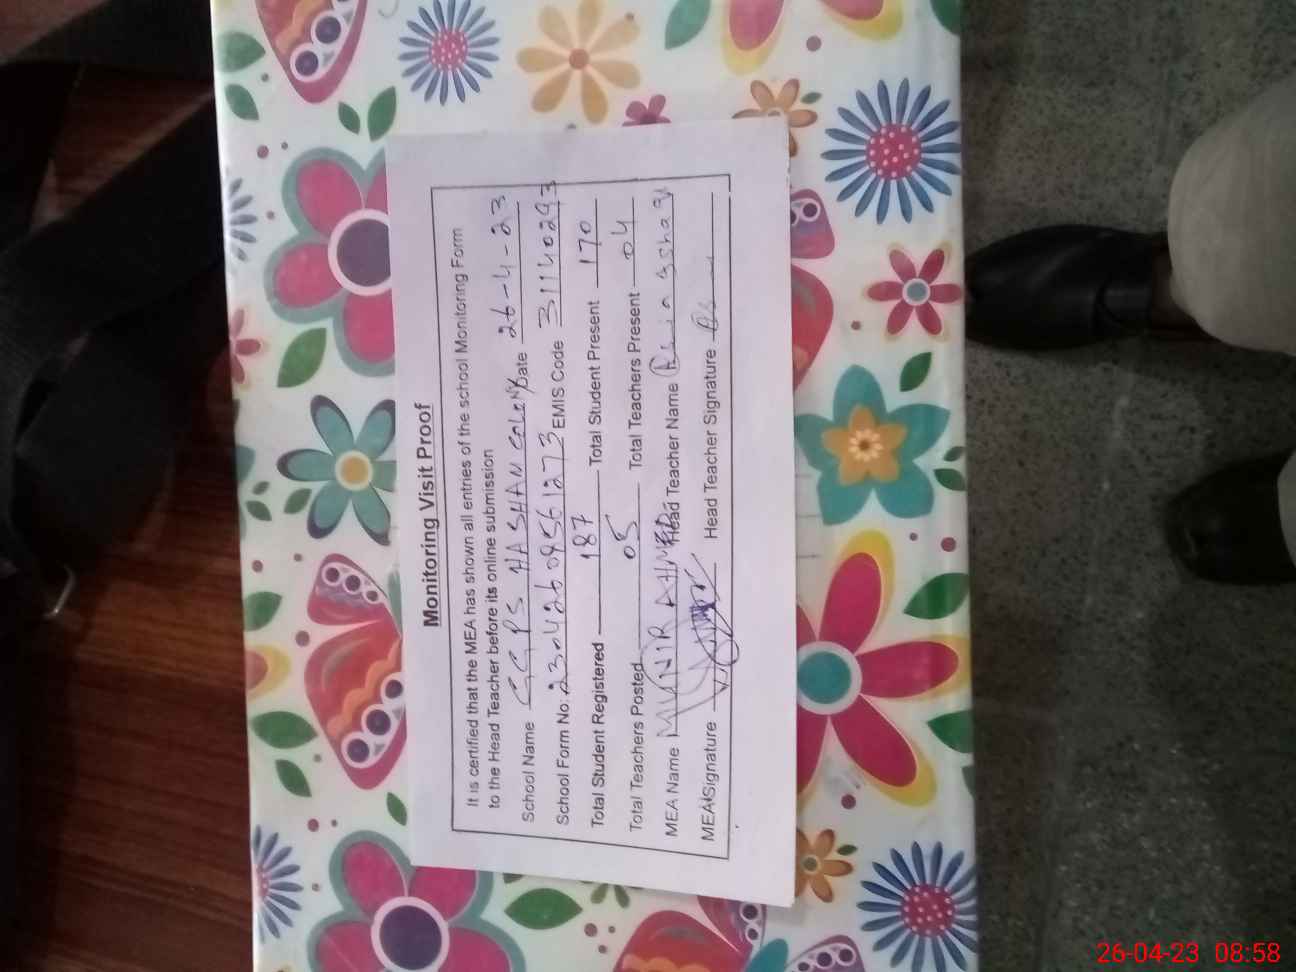 Monitoring Visit Proof
It is certified that the MEA has shown all entries of the school Monitoring Form
to the Head Teacher before its online submission
School Name GGPS HASHAN COLONY Date 26-4-23
School Form No. 23042609561273 EMIS Code 31140293
Total Student Registered 187 Total Student Present 170
Total Teachers Posted 05 Total Teachers Present 04
MEA Name MUNIR AHMED Head Teacher Name
MEA Signature Head Teacher Signature
26-04-23 08:58